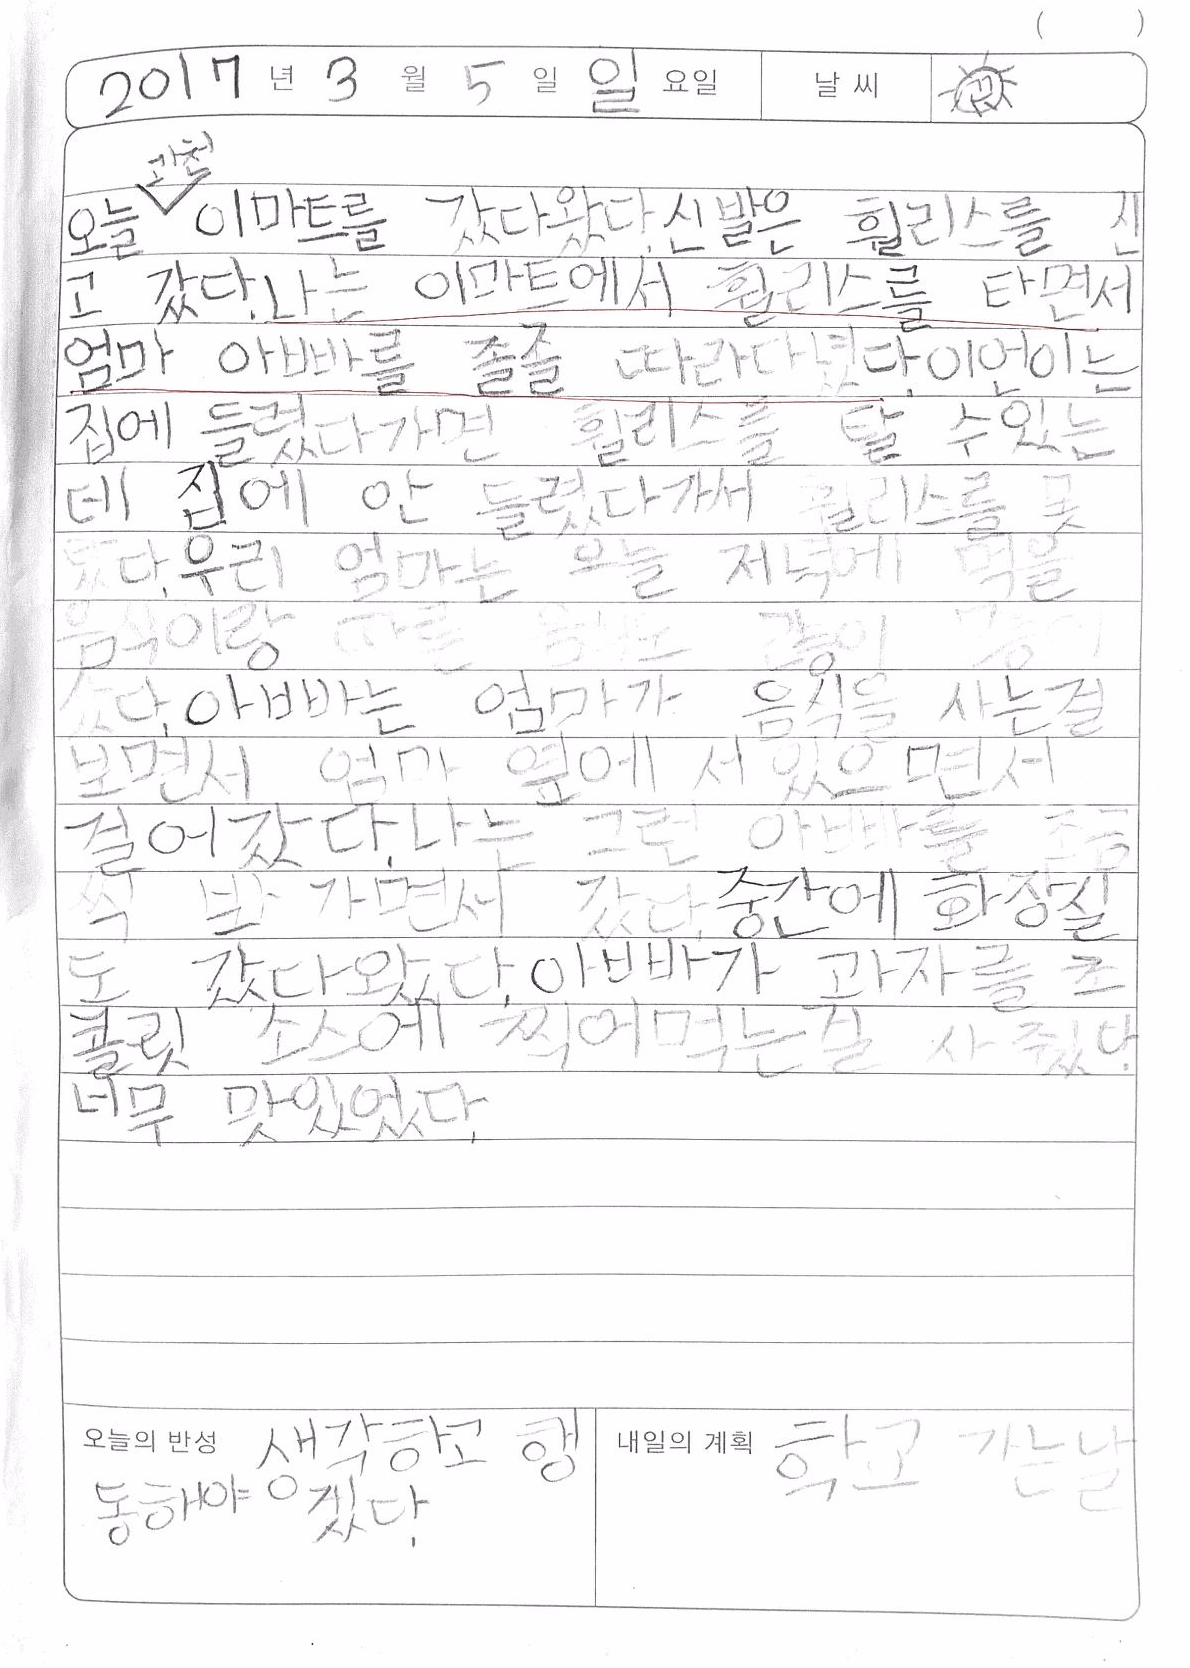 ( )
2017 년 3 월 5 일 일 요일 날 씨
과천
오늘 이마트를 갔다왔다. 신발은 휠리스를 신
고 갔다. 나는 이마트에서 휠리스를 타면서
엄마 아빠를 졸졸 따라다녔다. 이언이는
집에 들렸다가면 휠리스를 탈 수있는
데 집에 안 들렸다가서 휠리스를 못
탔다. 우리 엄마는 오늘 저녁에 먹을
음식이랑 다른 같이
샀다. 아빠는 엄마가 음식을 사는걸
보면서 엄마 옆에 서 있으면서
걸어갔다. 나는 그런 아빠를 조금
씩 봐 가면서 갔다. 중간에 화장실
도 갔다왔다. 아빠가 과자를 초
콜릿 소스에 찍어먹는걸 사 줬다.
너무 맛있었다.
오늘의 반성 생각하고 행
동해야 겠다.
내일의 계획 학교 가는날